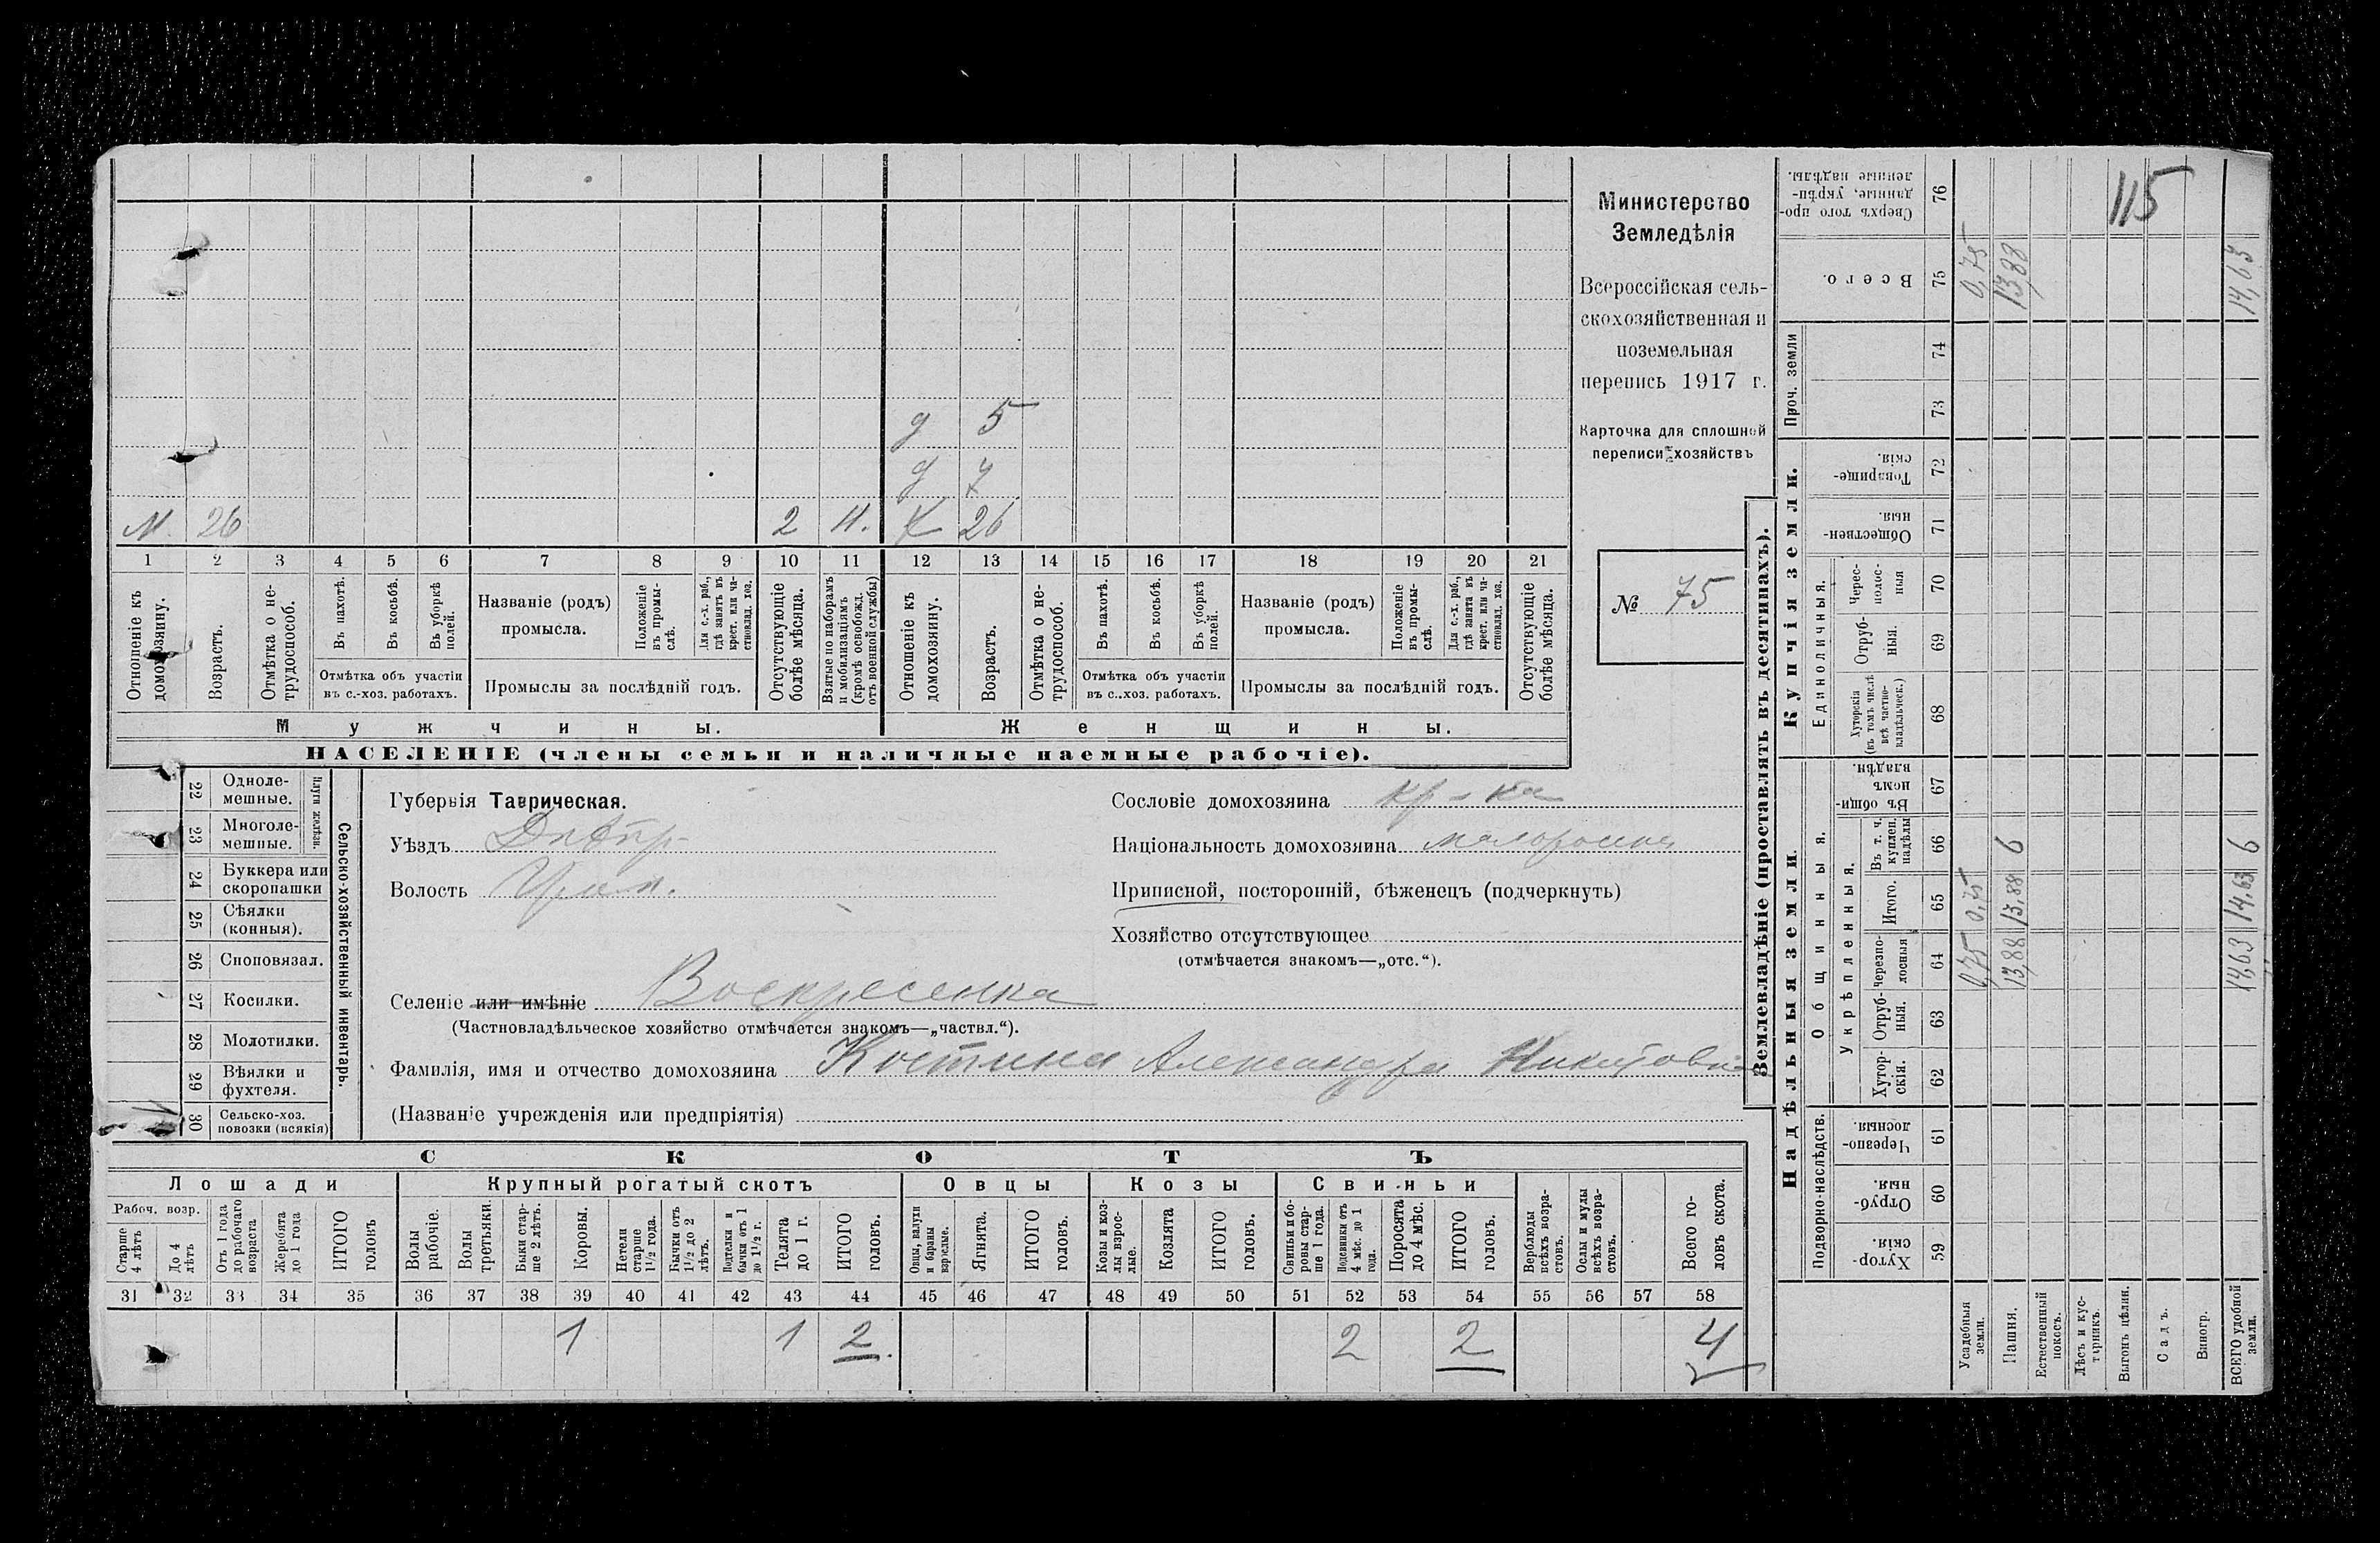 115
Министерство
Земледѣлія
Всероссійская сель-
скохозяйственная и
поземельная
перепись 1917 г.
Карточка для сплошной
переписи хозяйствъ
№ 75
д 5
д 7
М. 26 2 26
1 2 3 4 5 6 7 8 9 10 11 12 13 14 15 16 17 18 19 20 21
Отношеніе къ домохозяину.
Возрастъ.
Отмѣтка о не-трудоспособ.
Въ пахотѣ.
Въ косьбѣ.
Въ уборкѣ полей.
Отмѣтка объ участіи
въ с.-хоз. работахъ.
Названіе (родъ)
промысла.
Положеніе въ промы-слѣ.
Для с.-х. раб., гдѣ занятъ въ крест. или ча-стновлад. хоз.
Промыслы за послѣдній годъ.
Отсутствующіе болѣе мѣсяца.
Взятые по наборамъ и мобилизаціямъ (кромѣ освобожд. отъ военной службы)
Отношеніе къ домохозяину.
Возрастъ.
Отмѣтка о не-трудоспособ.
Въ пахотѣ.
Въ косьбѣ.
Въ уборкѣ полей.
Отмѣтка объ участіи
въ с..хоз. работахъ.
Названіе (родъ)
промысла.
Положеніе въ промы-слѣ.
Для с.-х. раб., гдѣ занята въ крест. или ча-стновлад. хоз.
Промыслы за послѣдній годъ.
Отсутствующіе болѣе мѣсяца.
Мужчины. Женщины.
НАСЕЛЕНІЕ (члены семьи и наличные наемные рабочіе).
22 Одноле-мешные.
23 Многоле-мешные.
Плуги желѣзн.
24 Буккера или скоропашки
25 Сѣялки (конныя).
26 Сноповязал.
27 Косилки.
28 Молотилки.
29 Вѣялки и фухтеля.
30 Сельско-хоз. повозки (всякія)
Сельско-хозяйственный инвентарь.
Губернія Таврическая.
Уѣздъ Днѣпр.
Волость
Сословіе домохозяина кр-ка
Національность домохозяина малоросска
Приписной, посторонній, бѣженецъ (подчеркнуть)
Хозяйство отсутствующее
(отмѣчается знакомъ—„отс.“).
Селеніе или имѣніе Воскресенка
(Частновладѣльческое хозяйство отмѣчается знакомъ—„частвл.“).
Фамилія, имя и отчество домохозяина Костина Александра Никитовна
(Названіе учрежденія или предпріятія)
СКОТЪ
Лошади Крупный рогатый скотъ Овцы Козы Свиньи
Рабоч. возр.
Старше 4 лѣтъ
До 4 лѣтъ
Отъ 1 года до рабочаго возраста
Жеребята до 1 года
ИТОГО головъ
Волы рабочіе.
Волы третьяки.
Быки стар-ше 2 лѣтъ.
Коровы.
Нетели старше 1½ года.
Бычки отъ 1½ до 2 лѣтъ.
Подтелки и бычки отъ 1 до 1½ г.
Телята до 1 г.
ИТОГО головъ.
Овцы, валухи и бараны взрослые.
Ягнята.
ИТОГО головъ.
Козы и коз-лы взрос-лые.
Козлята
ИТОГО головъ.
Свиньи и бо-ровы стар-ше 1 года.
Подсвинки отъ 4 мѣс. до 1 года.
Поросята до 4 мѣс.
ИТОГО головъ.
Верблюды всѣхъ возра-стовъ.
Ослы и мулы всѣхъ возра-стовъ.
Всего го-ловъ скота.
31 32 33 34 35 36 37 38 39 40 41 42 43 44 45 46 47 48 49 50 51 52 53 54 55 56 57 58
1 1 2 2 2 4
Землевладѣніе (проставлять въ десятинахъ).
Надѣльныя земли. Купчія земли. Проч. земли
Подворно-наслѣдств.
Общинныя.
Укрѣпленныя.
Единоличныя.
Хутор-скія. 59
Отруб-ныя. 60
Черезпо-лосныя. 61
Хутор-скія. 62
Отруб-ныя. 63
Черезпо-лосныя 64
Итого. 65
Въ т. ч. куплен. надѣлы 66
Въ общин-номъ владѣн. 67
Хуторскія (въ томъ числѣ всѣ частно-владѣльческ.) 68
Отруб-ныя. 69
Черес-полос-ныя 70
Обществен-ныя. 71
Товарище-скія. 72
73
74
Всего. 75
Сверхъ того про-данные, укрѣп-ленные надѣлы. 76
Усадебныя земли. 0,75 0,75 0,75
Пашня. 13,88 13,88 6 13,88
Естественный покосъ.
Лѣсъ и кус-тарникъ.
Выгонъ цѣлин.
Садъ.
Виногр.
ВСЕГО удобной земли. 14,63 14,63 6 14,63